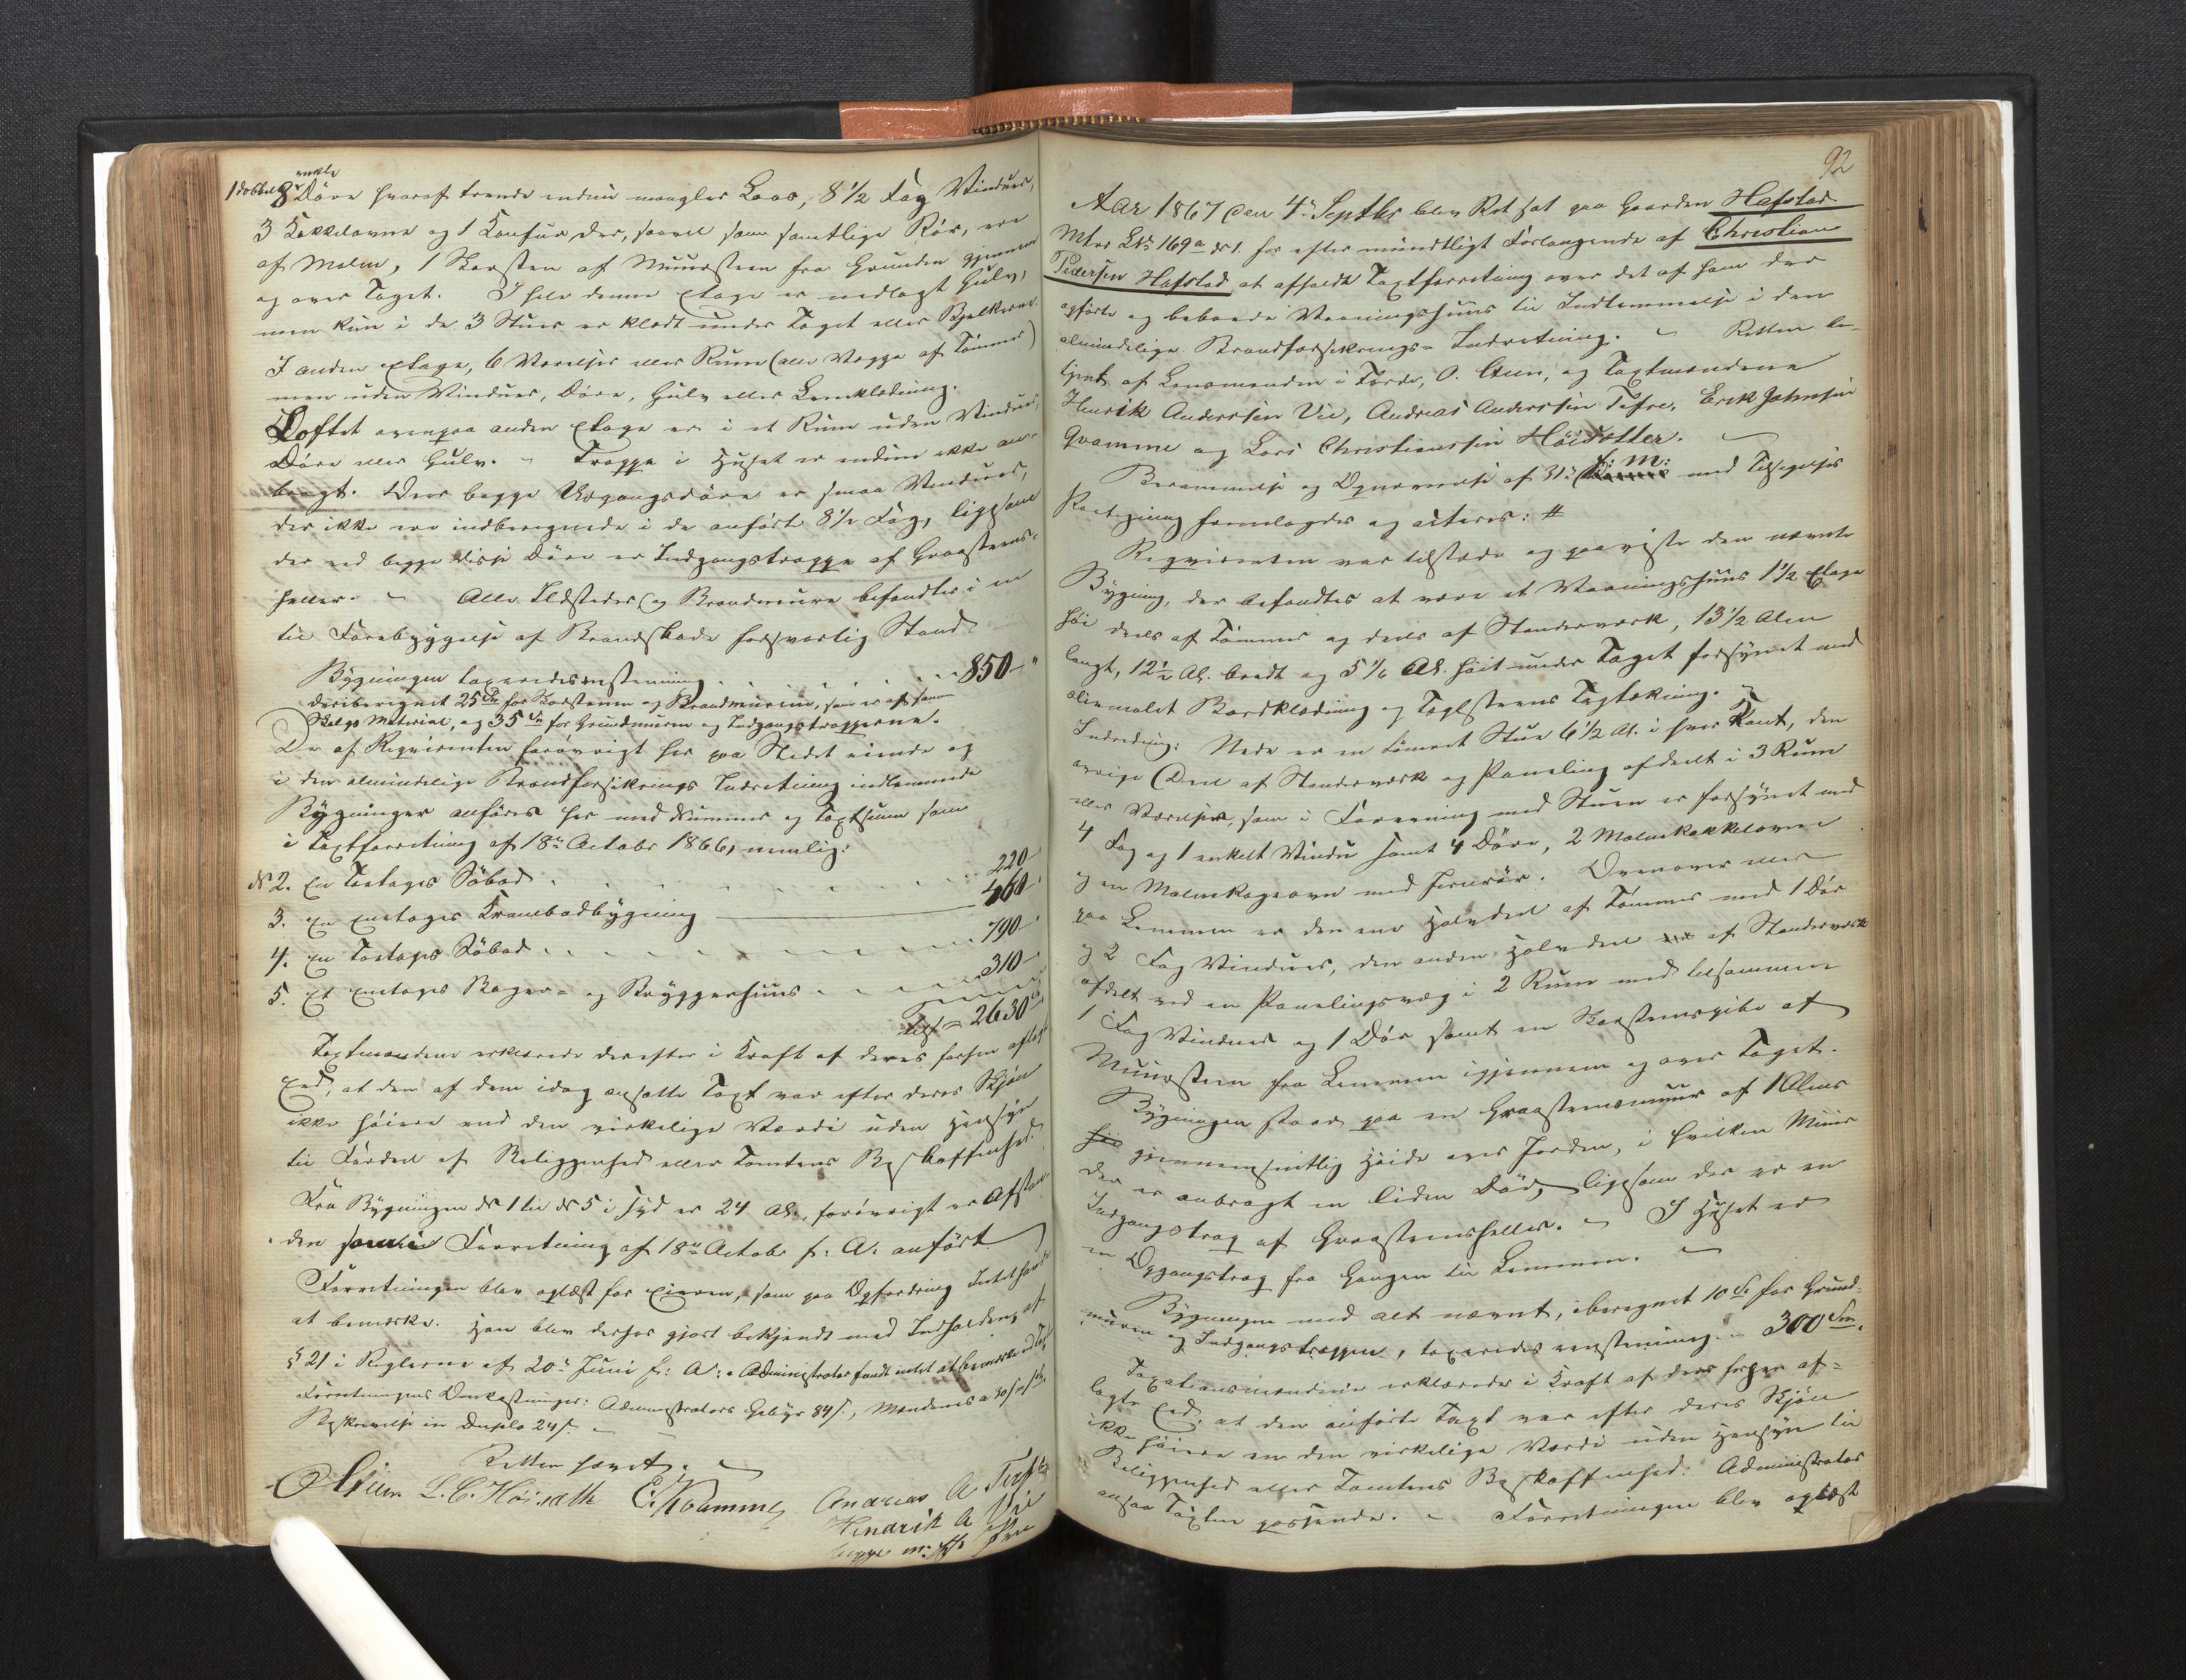 enkle
1 dobbel 8 Døre hvoraf trende endnu mangler Laas, 8 1/2 Fag Vinduer,
3 Kakkelovne og 1 Komfur, der, saavel som samtlige Rør, ere
af Malm, 1 Skorsten af Muursteen fra Grunden gjennem
og over Taget. I hele denne Etage er nedlagt Gulv,
men kun i de 3 Stuer er klædt under Taget eller Bjelkerne.
I anden Etage, 6 Værelser eller Rum (alle Vægge af Tømmer)
men uden Vinduer, Døre, Gulv eller Lemklædning.
Loftet ovenpaa anden Etage er i et Rum uden Vinduer,
Døre eller Gulv. - Trappe i Huset er endnu ikke an-
bragt. Over begge Udgangsdøre er smaa Vinduer,
der ikke ere indberegnede i de anførte 8 1/2 Fag, ligesom
der ved begge disse Døre er Indgangstrappe af Graasteens-
heller. - Alle Ildsteder og Brandmure befandtes i en
til Forebyggelse af Brandskade forsvarlig Stand.
Bygningen taxeredes enstemmig . . . . . 850 "
deriberegnet 25 Spd for Skorstenen og Brandmurene, som er af samme
Slags Materiale, og 35 Spd for Grundmuren og Indgangstrapperne.
De af Reqvirenten forøvrigt her paa Stedet eiende og
i den almindelige Brandforsikrings Indretning indlemmede
Bygninger anføres her med Nummer og Taxtsum som
i Taxtforretning af 18de Octobr 1866, nemlig:
No 2. En Toetages Søbod . . . . . 220
3. En Enetages Krambodbygning 460
4. En Toetages Søbod . . . . . 790
5. Et Enetages Bager- og Bryggerhuus . . . 310
Tils = 2630
Taxtmændene erklærede derefter i Kraft af deres forhen aflagte
Eed, at den af dem idag ansatte Taxt var efter deres Skjøn
ikke høiere end den virkelige Værdi uden Hensyn
til Fordeel af Beliggenhed eller Tomtens Beskaffenhed.
Fra Bygningen No 1 til No 5 i Syd er 24 Al., forøvrigt er Afstan-
den som i Forretning af 18de Octobr f: A: anført
Forretningen blev oplæst for Eieren, som paa Opfordring Intet havde
at bemærke. Han blev derhos gjort bekjendt med Indholdet af
§ 21 i Reglerne af 20de Juni f: A: - Administrator fandt intet at bemærke ved Taxten
Forretningens Omkostninger: Administrators Gebyr 84 s, Mændenes a 30 s
Beskrivelse in Duplo 24 s.
Retten hævet.
O Steen L. C. Høisæth E. Kvamme Andreas A Tefre
Hendrik A Vie
begge m: p: Pen
92
Aar 1867 den 4de Septbr blev Ret sat paa Gaarden Hafstad
Mtr Lb: 169a No 1. for efter mundtligt Forlangende af Christian
Pedersen Hafstad at afholde Taxtforretning over det af ham der
opførte og beboede Vaaningshuus til Indlemmelse i den
almindelige Brandforsikrings-Indretning. - Retten be-
tjent af Lensmanden i Førde, O. Steen, og Taxtmændene
Henrik Anderssen Vie, Andreas Anderssen Tefre, Erik Johnsen
Qvamme og Lars Christianssen Høisætter.
f: M:
Berammelse og Opnævnelse af 31te med Tilsigelses
Paategning fremlagdes og acteres: #
Reqvirenten var tilstede og paaviste den nævnte
Bygning, der befandtes at være et Vaaningshuus 1 1/2 Etage
høi deels af Tømmer og deels af Standerværk, 13 1/2 Alen
langt, 12 1/2 Al. bredt og 5 1/2 Al. høit under Taget forsynet med
oliemalet Bordklædning og Taglsteens Tagtækning. -
Indredning: Nede er en tømret Stue 6 1/2 Al. i hver Kant, den
øvrige Deel af Standerværk og Paneling afdeelt i 3 Rum
eller Værelser, som i Forening med Stuen er forsynet med
4 Fag og 1 enkelt Vindu samt 4 Døre, 2 Malmkakkelovne
og en Malmkogeovn med Jernrør. Ovenover eller
paa Lemmen er den ene Halvdeel af Tømmer med 1 Dør
og 2 Fag Vinduer, den anden Halvdeel af Standerværk
afdelt ved en Panelingsvæg i 2 Rum med tilsammen
1 Fag Vinduer og 1 Dør samt en Skorsteenspibe af
Muursteen fra Lemmen igjennem og over Taget.
Bygningen staar paa en Graasteensmuur af 1 Alens
gjennemsnitlig Høide over Jorden, i hvilken Muur
der er anbragt en liden Dør, ligesom der er en
Indgangstrap af Graasteensheller. - I Huset er
en Opgangstrap fra Gangen til Lemmen. -
Bygningen med alt nævnt, iberegnet 10 Spd for Grund-
muren og Indgangstrappen, taxeredes enstemmig - 300 Spd.
Taxationsmændene erklærede i Kraft af deres forhen af-
lagte Eed, at den anførte Taxt var efter deres Skjøn
ikke høiere en den virkelige Værdi uden Hensyn til
Beliggenhed eller Tomtens Beskaffenhed. Administrator
ansaa Taxten passende. - Forretningen blev oplæst